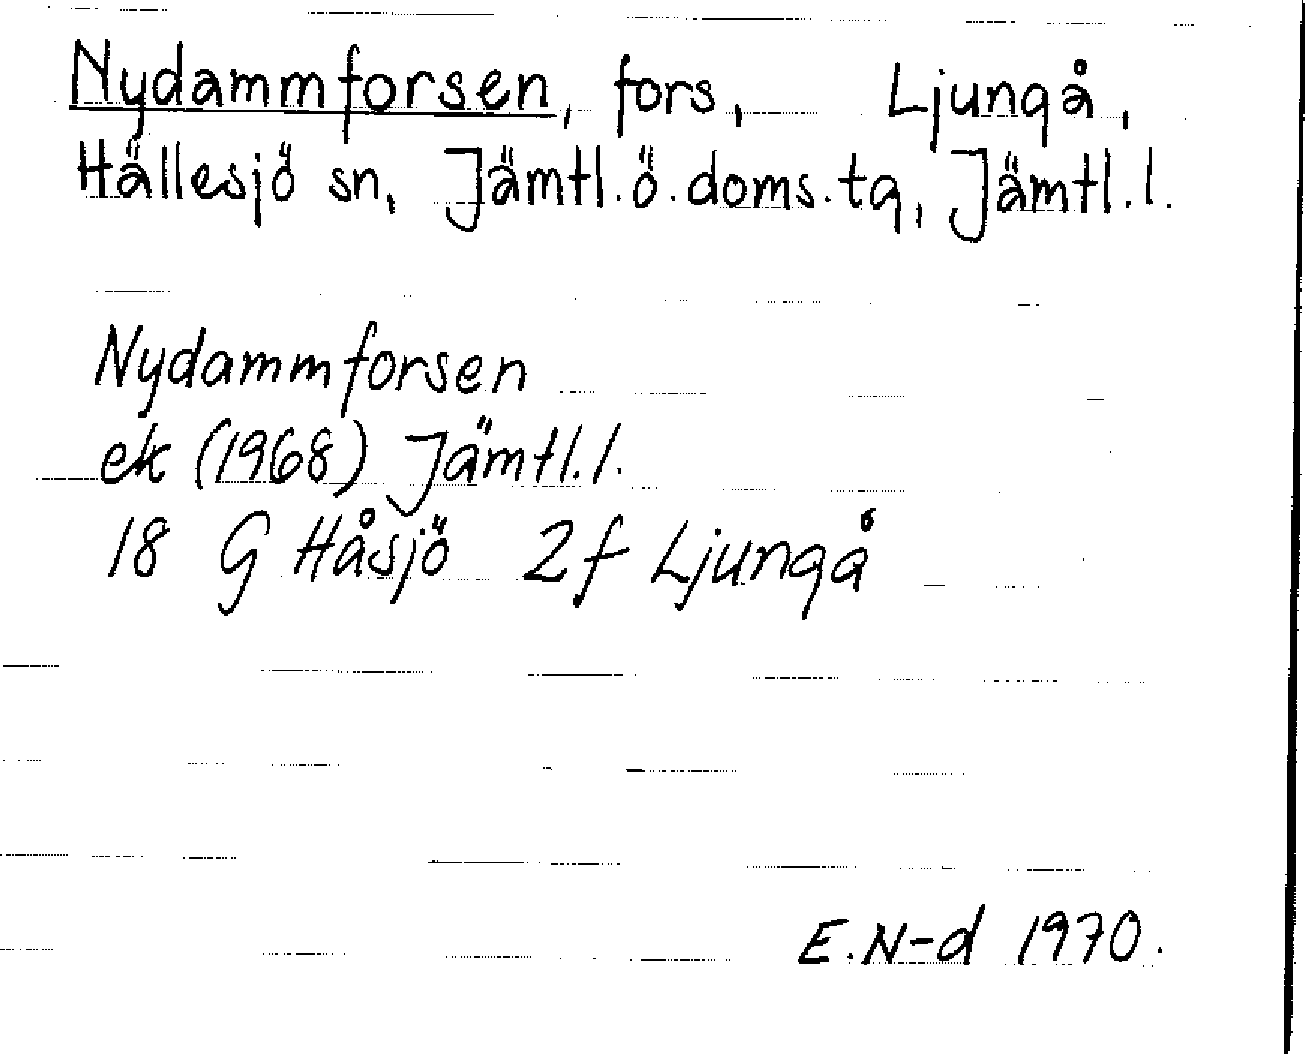 Nydammforsen, fors, Ljungå,
Hällesjö sn, Jämtl.ö.doms.tg, Jämtl.l.
Nydammforsen
ek (1968) Jämtl.l.
18 G Håsjö 2f Ljungå
E.N-d 1970.